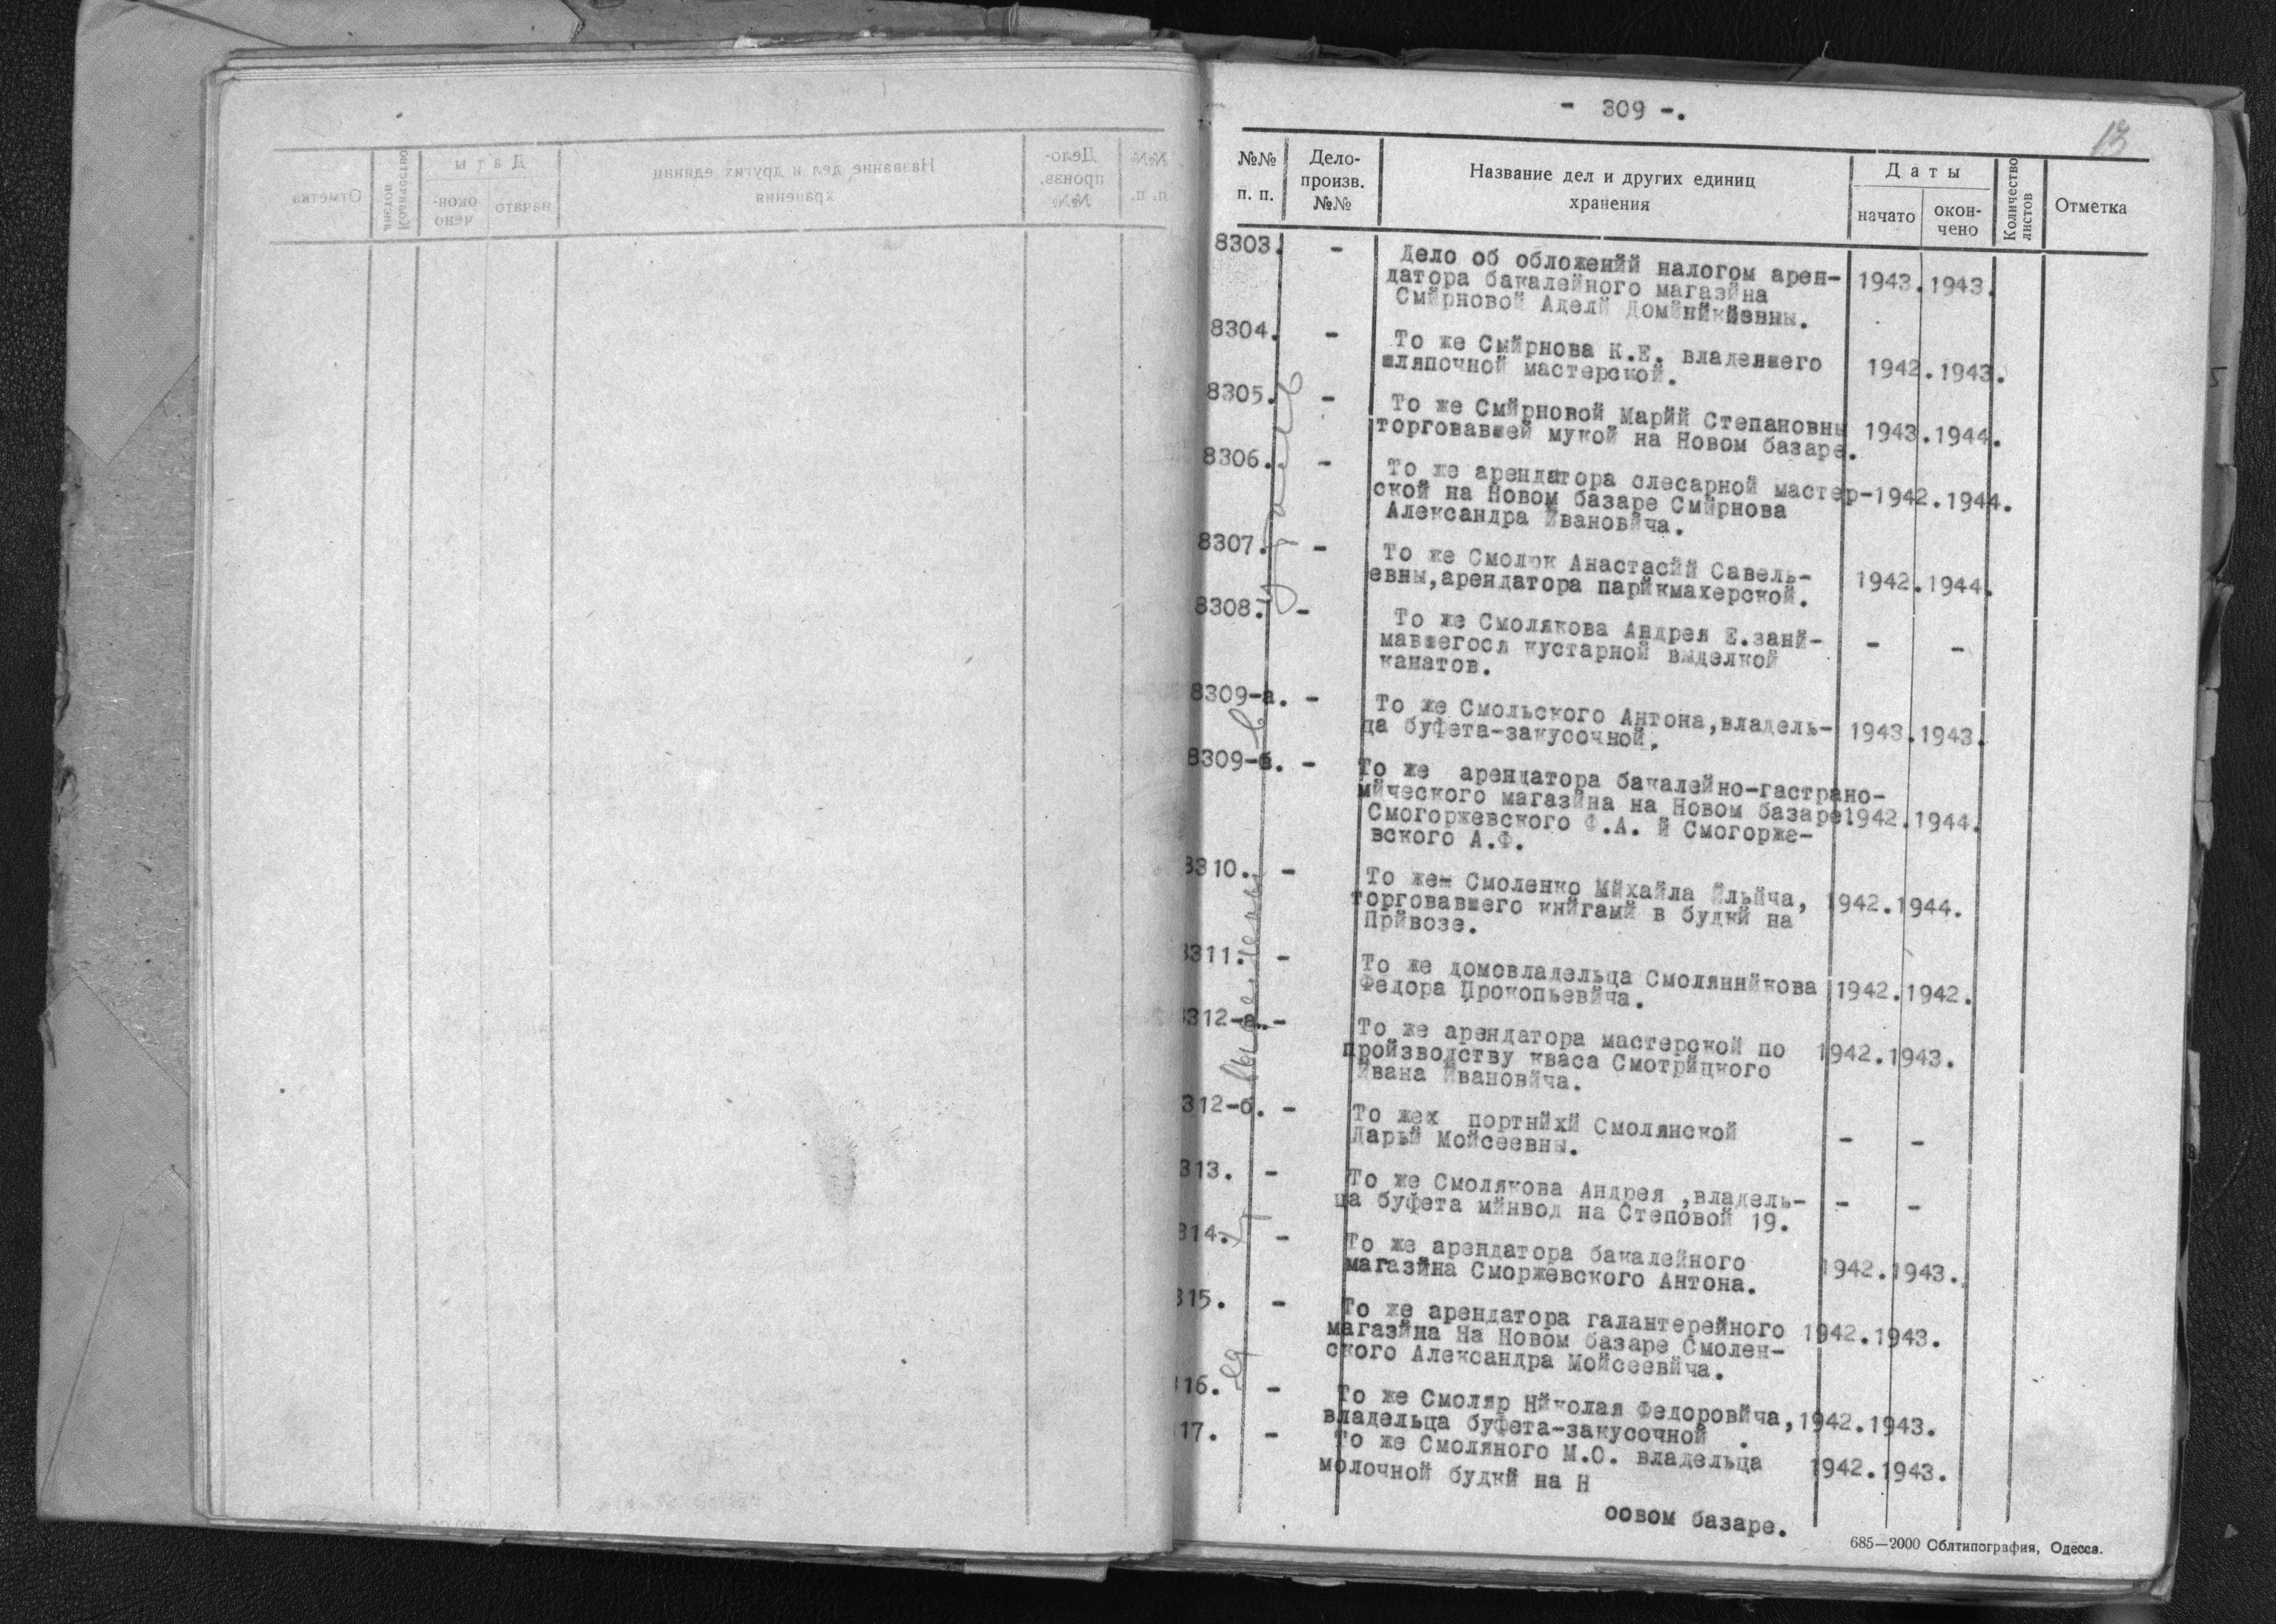 - 309 -.
13
№№ п. п.
Дело-произв. №№
Название дел и других единиц хранения
Даты
начато
окон-чено
Количество листов
Отметка
8303. - Дело об обложений налогом арен-
датора бакалейного магазйна 1943. 1943.
Смйрновой Аделй Домйнйкйевны.
8304. - То же Смйрнова К.Е. владевшего
шляпочной мастерской. 1942. 1943.
8305. - То же Смйрновой Марйй Степановны
торговавшей мукой на Новом базаре. 1943. 1944.
8306. - То же арендатора слесарной мастер-1942. 1944.
ской на Новом базаре Смйрнова
Александра Йвановйча.
8307. - То же Смолюк Анастасйй Савель-
евны,арендатора парйкмахерской. 1942. 1944.
8308. - То же Смолякова Андрея Е.занй- - -
мавшегося кустарной выделкой
канатов.
8309-а. - То же Смольского Антона,владель-
ца буфета-закусочной. 1943. 1943.
8309-б. - То же арендатора бакалейно-гастрано-
мйческого магазйна на Новом базаре1942. 1944.
Смогоржевского Ф.А. й Смогорже-
вского А.Ф.
8310. - То же Смоленко Мйхайла Йльйча, 1942. 1944.
торговавшего кнйгамй в будкй на
Прйвозе.
8311. - То же домовладельца Смоляннйкова 1942. 1942.
Федора Прокопьевйча.
312-а. - То же арендатора мастерской по 1942. 1943.
пройзводству кваса Смотрйцкого
Йвана Йвановйча.
312-б. - То жех портнйхй Смолянской - -
Дарьй Мойсеевны.
313. - То же Смолякова Андрея ,владель- - -
ца буфета мйнвод на Степовой 19.
314. - То же арендатора бакалейного 1942. 1943.
магазйна Сморжевского Антона.
315. - То же арендатора галантерейного 1942. 1943.
магазйна На Новом базаре Смолен-
ского Александра Мойсеевйча.
16. - То же Смоляр Нйколая Федоровйча, 1942. 1943.
владельца буфета-закусочной .
17. - То же Смоляного М.О. владельца 1942. 1943.
молочной будкй на Н
оовом базаре.
685—2000 Облтипография, Одесса.